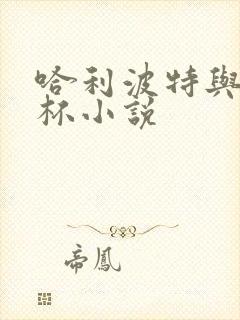 哈利波特與
杯小說
帝鳳